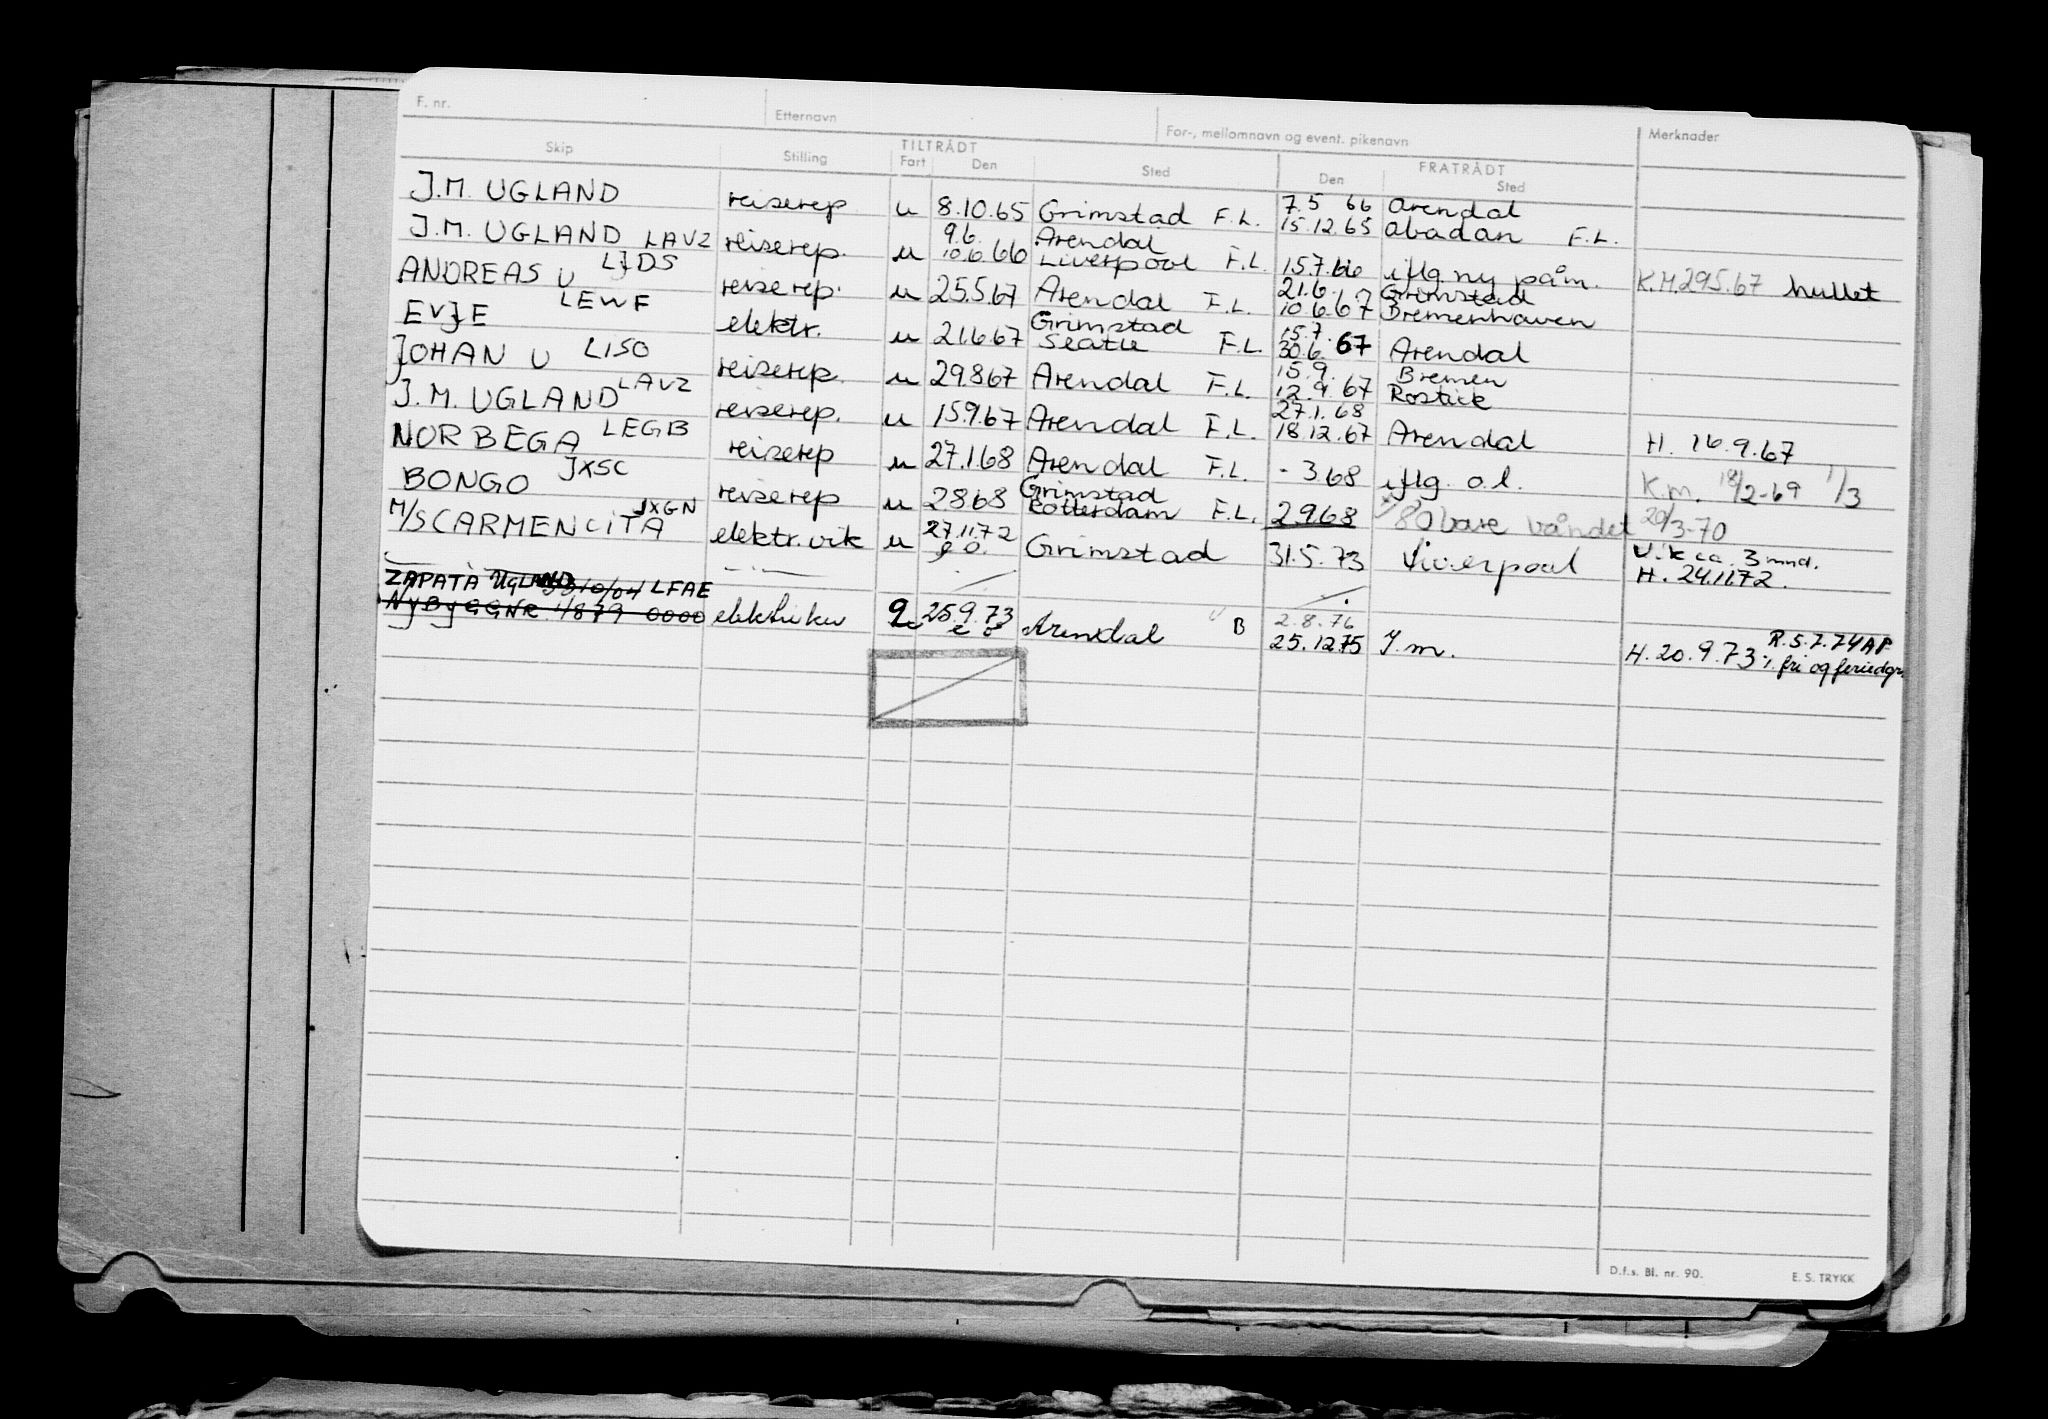 F. nr. Etternavn For-, mellomnavn og event. pikenavn Merknader
Skip Stilling TILTRÅDT Fart Den Sted FRATRÅDT Den Sted
J.M. UGLAND reiserep u 8.10.65 Grimstad F.L. 7.5 66 Arendal
15.12.65 abadan F.L.
J.M. UGLAND LAVZ reiserep. u 9.6. Arendal
10.6.66 Liverpool F.L. 15.7.66 iflg. ny påm.
ANDREAS U LJDS reiserep. u 25.5.67 Arendal F.L. 21.6. Grimstad K.M.29.5.67 hullet
10.6.67 Bremerhaven
EVJE LEWF elektr. u 21.6.67 Grimstad
Seatle F.L. 15.7.
30.6. 67 Arendal
JOHAN U LISO reiserep. u 29.8.67 Arendal F.L. 15.9. Bremen
12.9.67 Rostick
J.M. UGLAND LAVZ reiserep. u 15.9.67 Arendal F.L. 27.1.68
18.12.67 Arendal H. 16.9.67
NORBEGA LEGB reiserep u 27.1.68 Arendal F.L. - 3.68 iflg. o.l. K.m. 18/2-69 1/3
BONGO JXSC reiserep u 2.8.68 Grimstad
Rotterdam F.L. 2.9.68 80 bare båndet 20/3-70
M/S CARMENCITA JXGN elektr. vik u 27.11.72
e o. Grimstad 31.5.73 Liverpool Vik ca. 3 mnd.
H. 24.11.72.
ZAPATA UGLAND LFAE
NYBYGGNR. 1/879 0000 elektriker 25.9.73
e o Arendal B 2.8.76
25.12.75 I.m. H. 20.9.73 R.5.7.74AP
%. fri og feriedgr.
D.f.s. Bl. nr. 90. E. S. TRYKK